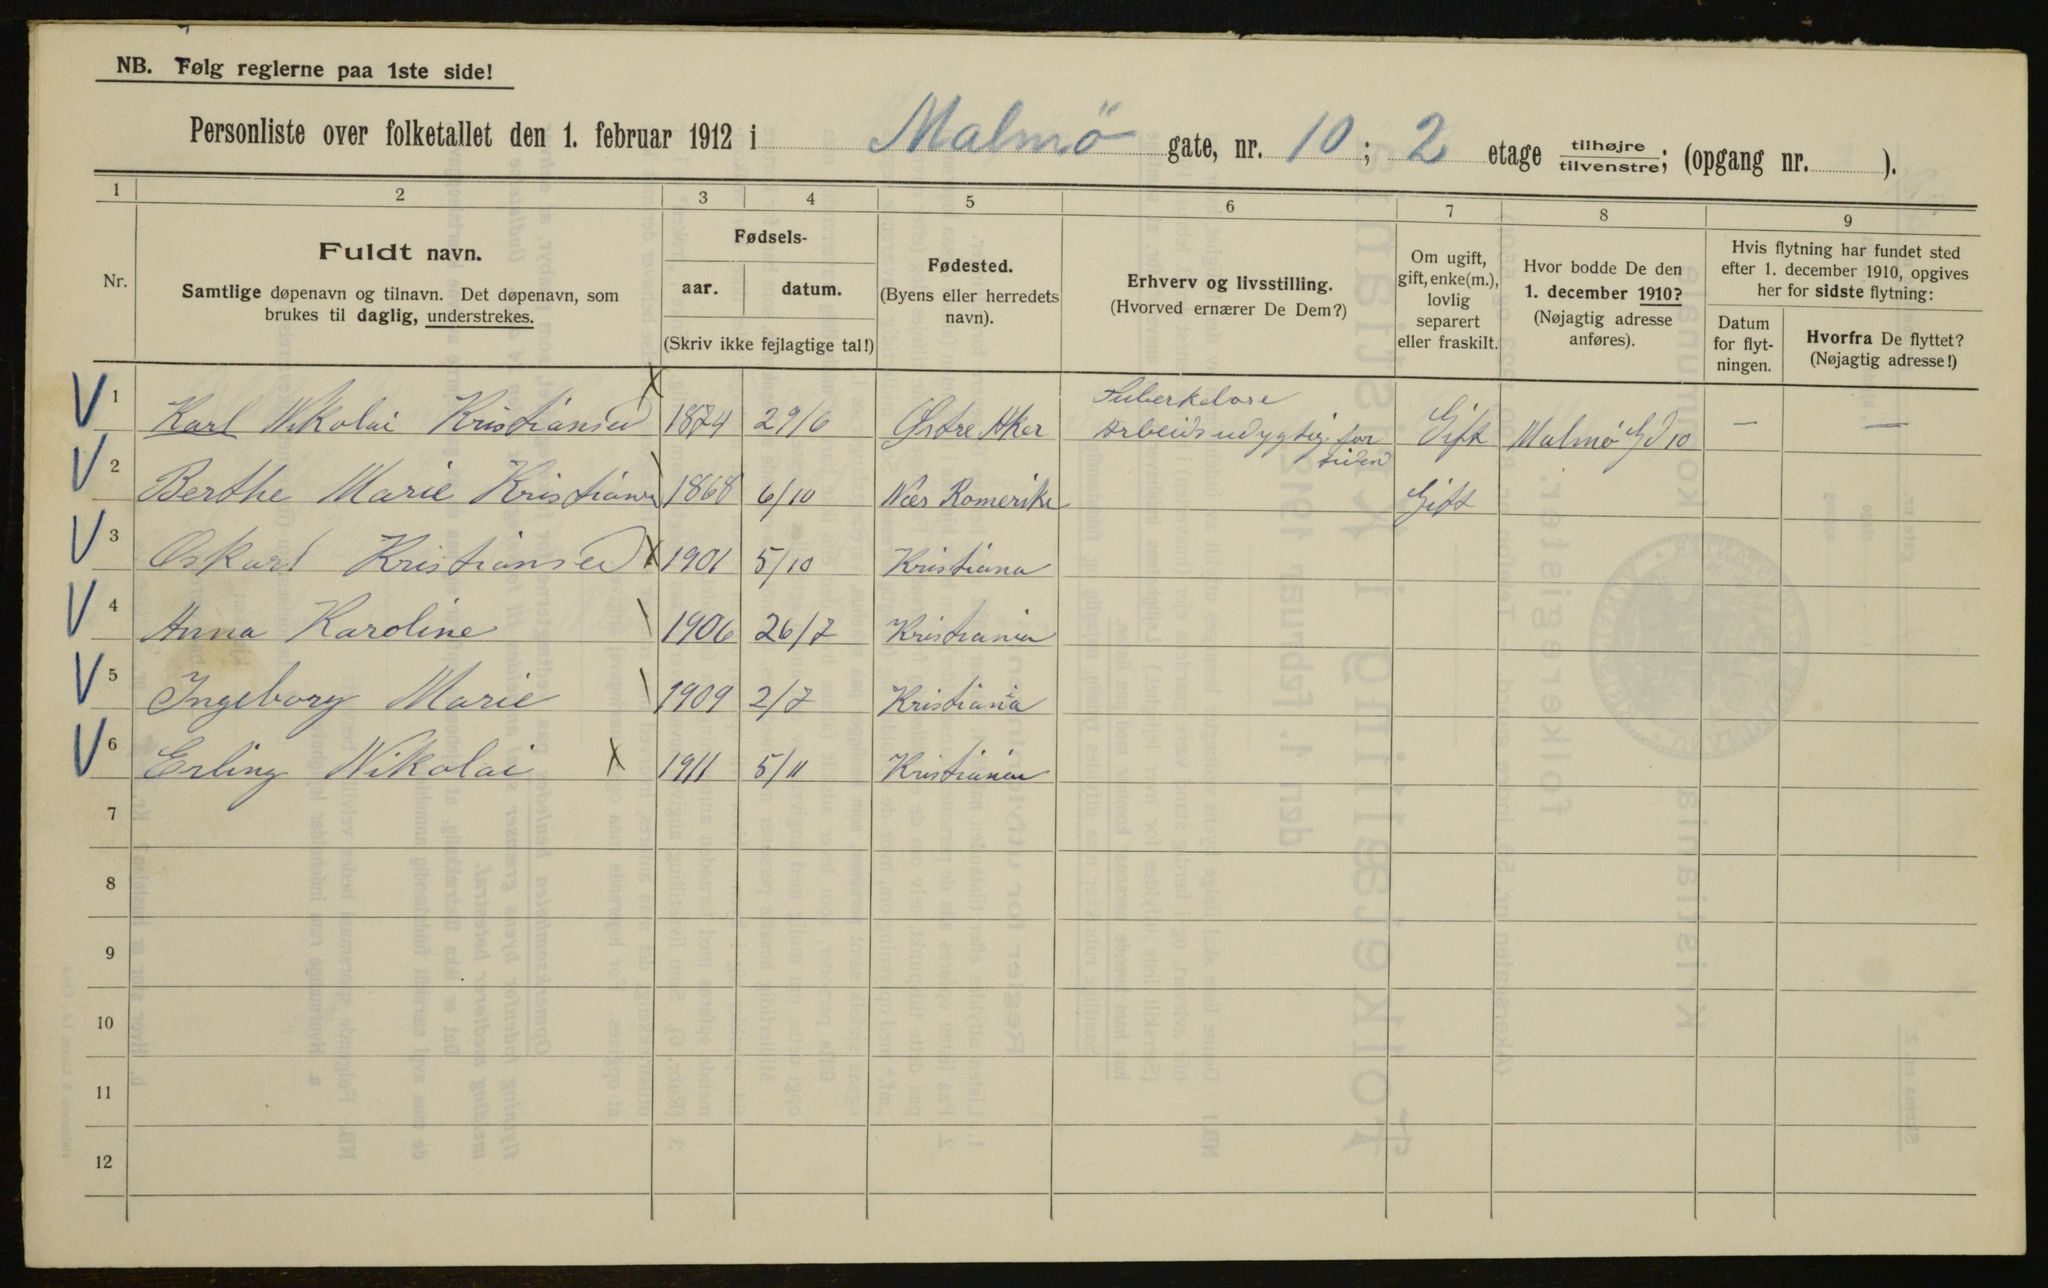 NB. Følg reglerne paa 1ste side!
Personliste over folketallet den 1. februar 1912 i Malmö gate, nr. 10; 2 etage tilhøjre/tilvenstre; (opgang nr. ).
1 2 3 4 5 6 7 8 9
Nr.
Fuldt navn.
Samtlige døpenavn og tilnavn. Det døpenavn, som
brukes til daglig, understrekes.
Fødsels-
aar. datum.
(Skriv ikke fejlagtige tal!)
Fødested.
(Byens eller herredets
navn).
Erhverv og livsstilling.
(Hvorved ernærer De Dem?)
Om ugift,
gift, enke(m.),
lovlig
separert
eller fraskilt.
Hvor bodde De den
1. december 1910?
(Nøjagtig adresse
anføres).
Hvis flytning har fundet sted
efter 1. december 1910, opgives
her for sidste flytning:
Datum
for flyt-
ningen.
Hvorfra De flyttet?
(Nøjagtig adresse!)
Tuberkelose
1 Karl Nikolai Kristiansen 1874 29/6 Østre Aker Arbeidsudygtig for Gift Malmö Gd 10 — —
tiden
2 Berthe Marie Kristiansen 1868 6/10 Næs Romerike Gift
3 Oskarl Kristiansen 1901 5/10 Kristiana
4 Anna Karoline 1906 26/7 Kristiania
5 Ingeborg Marie 1909 2/7 Kristiania
6 Erling Nikolai 1911 5/11 Kristiania
7
8
9
10
11
12